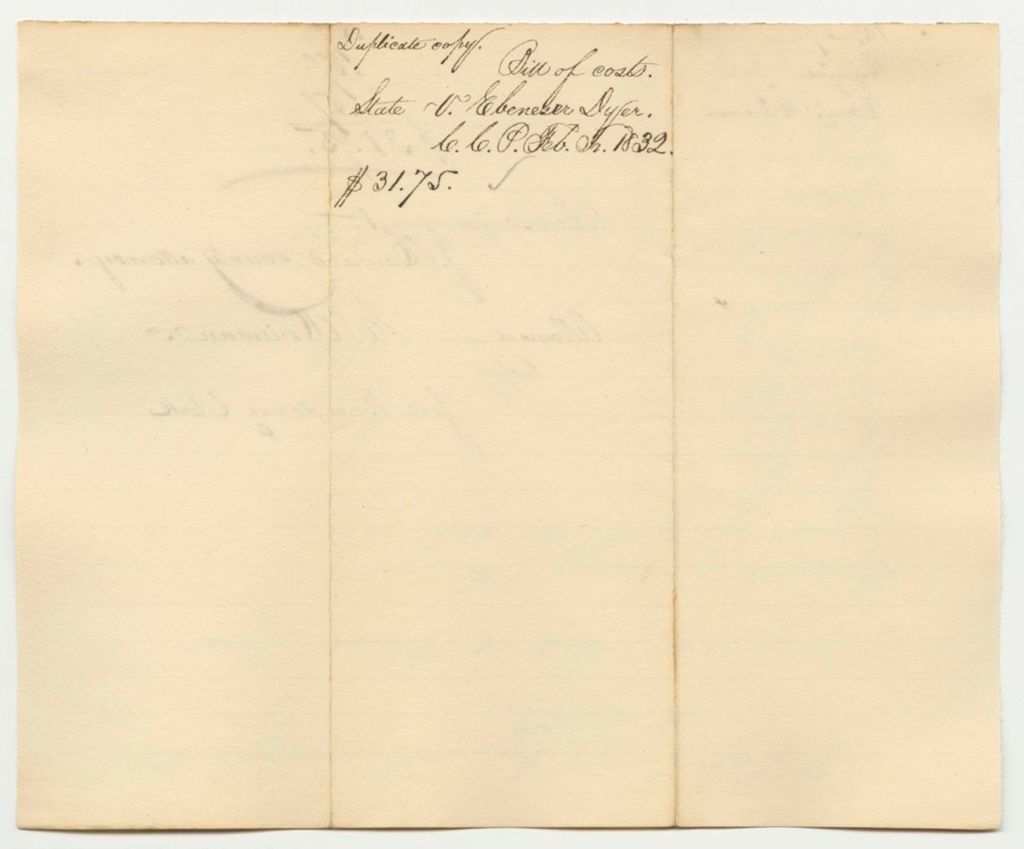 Duplicate copy.
Bill of costs.
State V. Ebenezer Dyer.
C. C. P. Feb. Tr. 1832.
$31.75.